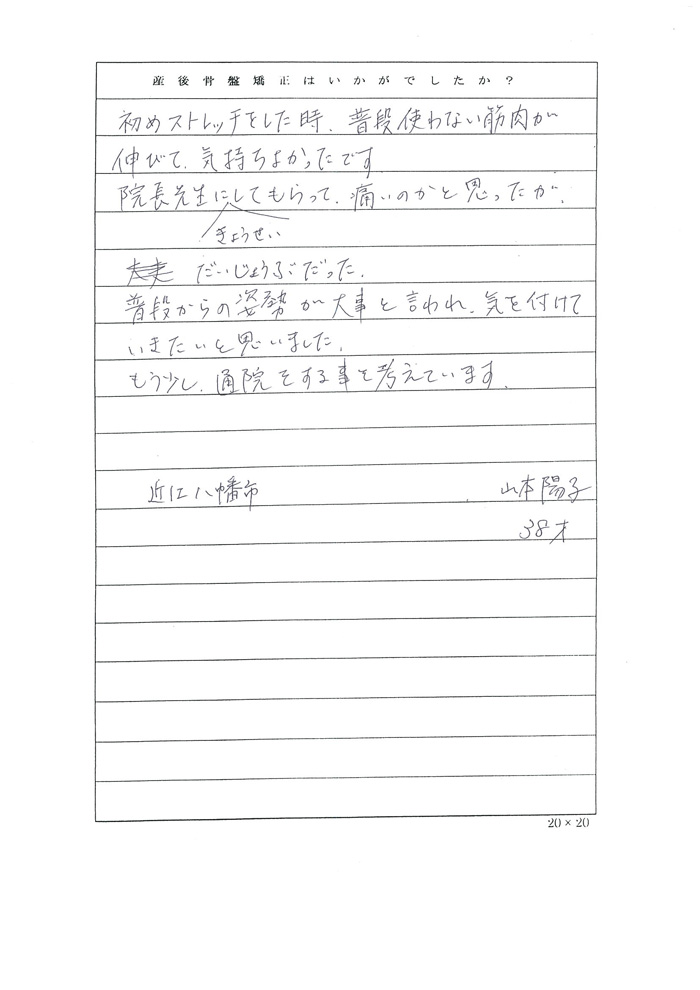 産後骨盤矯正はいかがでしたか？
初めストレッチをした時、普段使わない筋肉が
伸びて、気持ちよかったです。
院長先生にしてもらって、痛いのかと思ったが、
きょうせい
だいじょうぶだった。
普段からの姿勢が大事と言われ、気を付けて
いきたいと思いました。
もう少し、通院をする事を考えています。
近江八幡市 山本陽子
38才
20×20